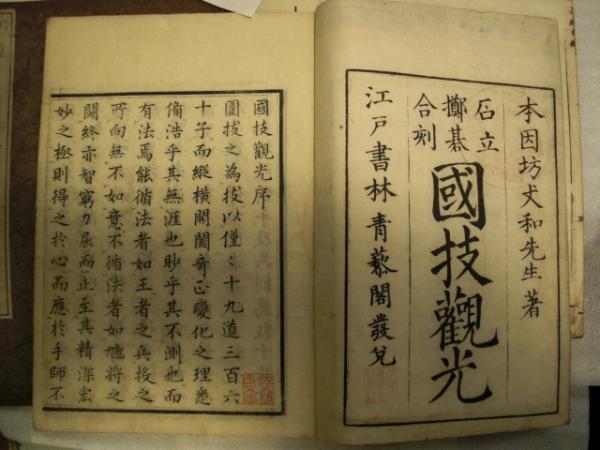 本因坊丈和先生著
石立
擲碁
合刻
國技觀光
江戸書林青藜閣發兌
國技觀光序
圍技之為技以僅〻十九道三百六
十子而縱橫開闔奇正變化之理悉
備浩乎其無涯也眇乎其不測也而
有法焉能循法者如王者之兵投之
所向無不如意不循法者如尫將之
鬪終亦智窮力屈而止至其精深宏
妙之極則得之於心而應於手師不